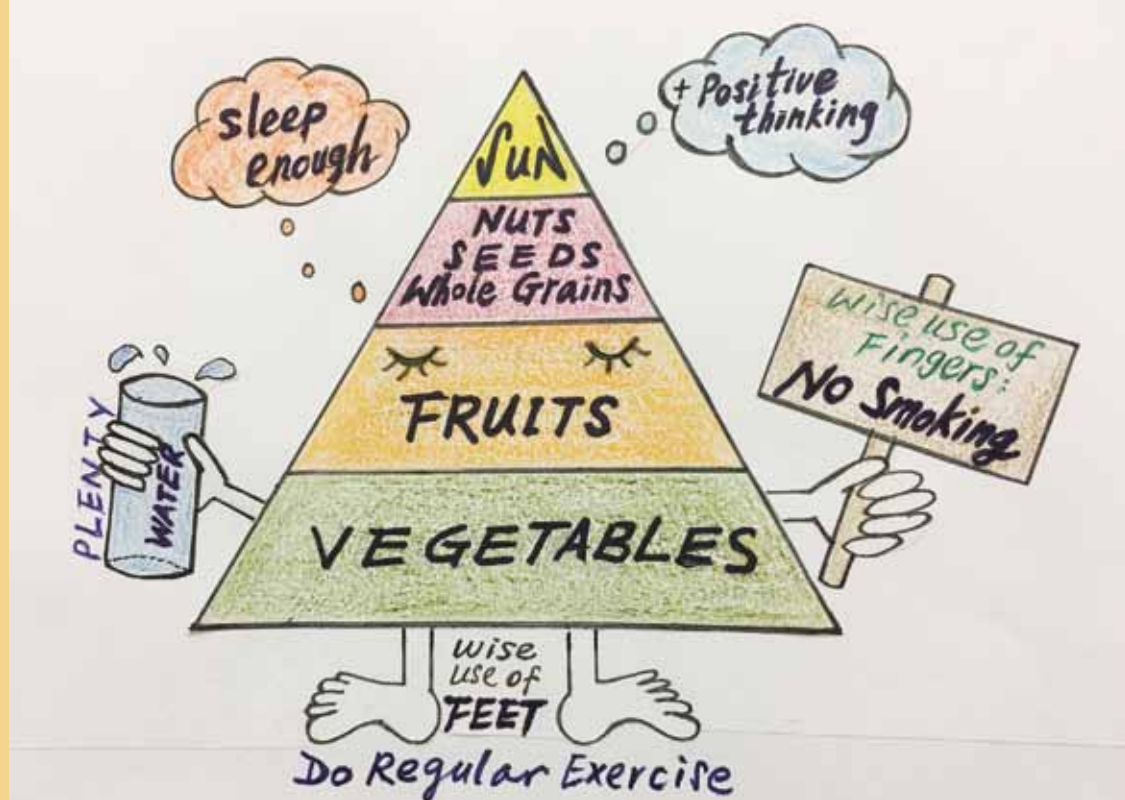 sleep
enough
+ Positive
thinking
SUN
NUTS
SEEDS
Whole Grains
FRUITS
VEGETABLES
PLENTY
WATER
wise use of
Fingers:
No Smoking
wise
use of
FEET
Do Regular Exercise